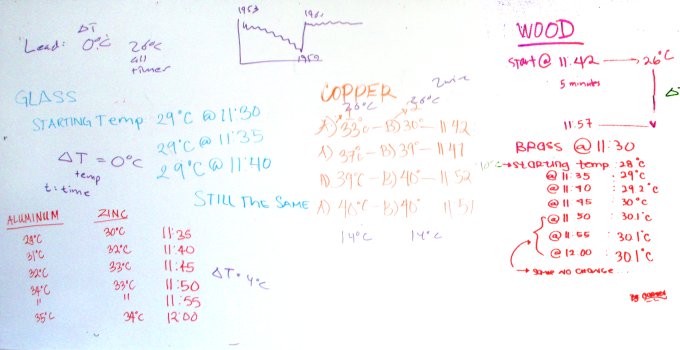 ΔT
Lead: 0°C 26°C
all
times
1953 1961
1959
GLASS
STARTING Temp 29°C @ 11:30
29°C @ 11:35
29°C @ 11:40
ΔT = 0°C
temp
t: time
STILL THE SAME
ALUMINUM ZINC
29°C 30°C 11:35
31°C 32°C 11:40
32°C 33°C 11:45
34°C 33°C 11:50
" " 11:55
35°C 34°C 12:00
ΔT = 4°C
COPPER
26°C 26°C
A) 33° - B) 30° - 11 42
A) 37° - B) 39° - 11 47
A) 39°C - B) 40° - 11 52
A) 40°C - B) 40° 11 57
14°C 14°C
WOOD
start @ 11:42 26°C
5 minutes
Δ
11:57
BRASS @ 11:30
STARTING temp : 28°C
@ 11:35 : 29°C
@ 11:40 : 29.2°C
@ 11 45 : 30°C
@ 11 50 : 30.1°C
@ 11:55 : 30.1°C
@ 12:00 : 30.1°C
SAME NO CHANGE...